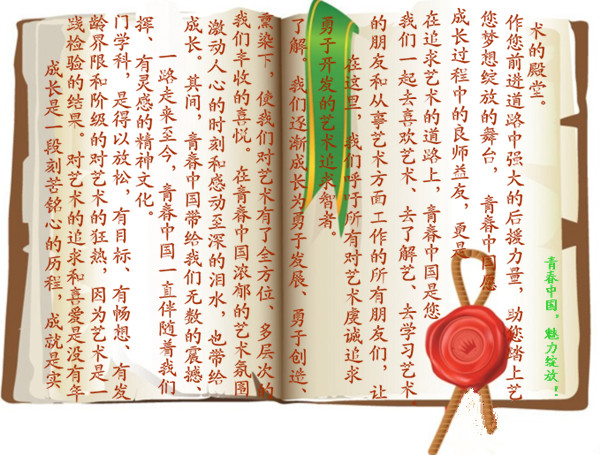 成长是一段刻苦铭心的历程，成就是实
践检验的结果。对艺术的追求和喜爱是没有年
龄界限和阶级的对艺术的狂热，因为艺术是一
门学科，是得以放松，有目标、有畅想、有发
挥、有灵感的精神文化。
一路走来至今，青春中国一直伴随着我们
成长。其间，青春中国带给我们无数的震撼、
激动人心的时刻和感动至深的泪水，也带给
我们丰收的喜悦。在青春中国浓郁的艺术氛围
熏染下，使我们对艺术有了全方位、多层次的
了解。我们逐渐成长为勇于发展、勇于创造、
勇于开发的艺术追求智者。
在这里，我们呼吁所有对艺术虔诚追求
的朋友和从事艺术方面工作的所有朋友们，让
我们一起去喜欢艺术、去了解艺、去学习艺术
在追求艺术的道路上，青春中国是您
成长过程中的良师益友，更是
您梦想绽放的舞台，青春中国愿
作您前进道路中强大的后援力量，助您踏上艺
术的殿堂。
青春中国，魅力绽放！